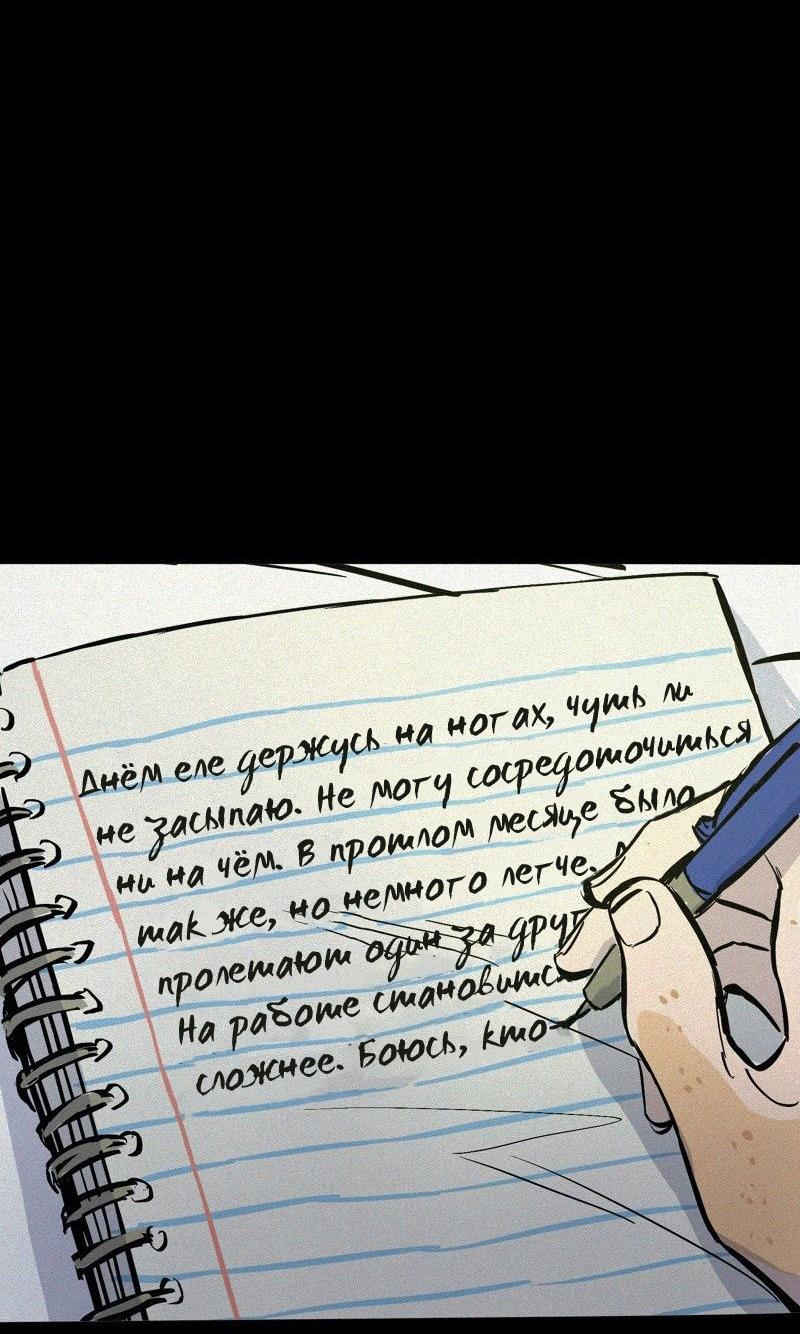 Днём еле держусь на ногах, чуть ли
не засыпаю. Не могу сосредоточиться
ни на чём. В прошлом месяце было
так же, но немного легче.
пролетают один за
На работе становится
сложнее. Боюсь, кто-